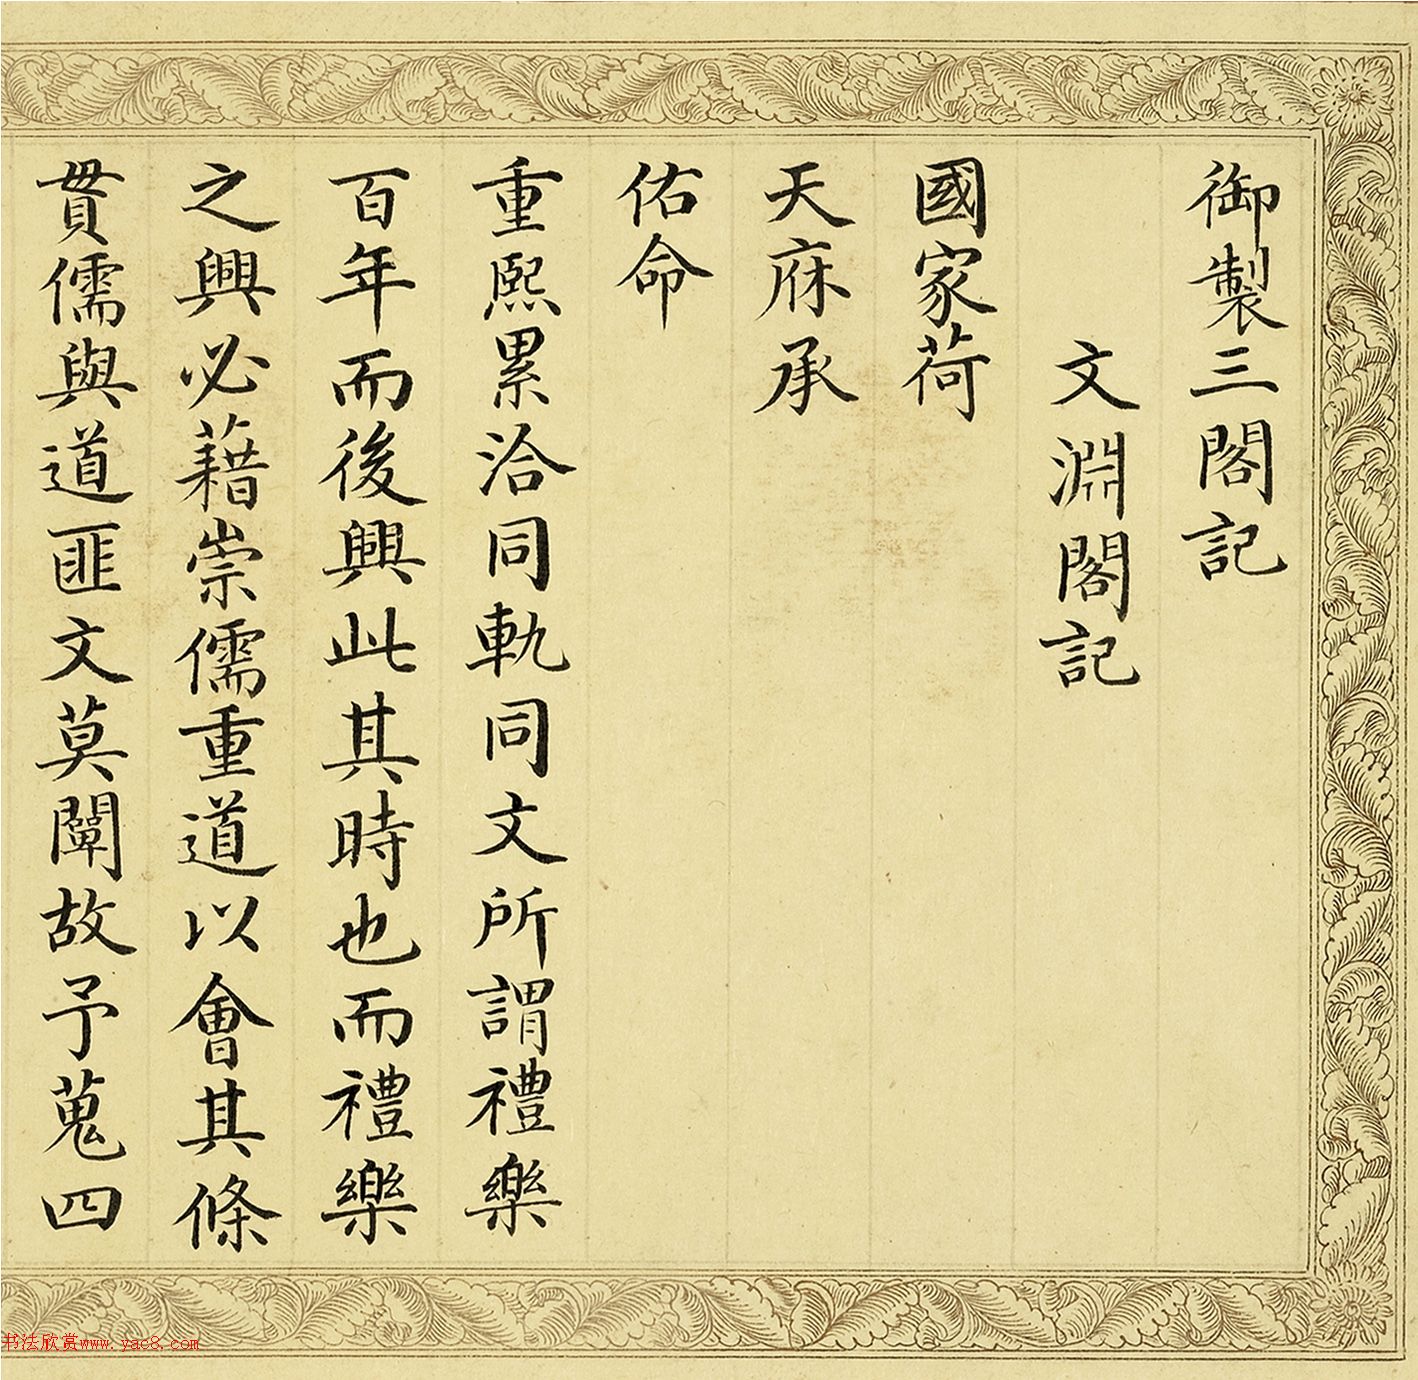 御製三閣記
文淵閣記
國家荷
天庥承
佑命
重熙累洽同軌同文所謂禮樂
百年而後興此其時也而禮樂
之興必藉崇儒重道以會其條
貫儒與道匪文莫闡故予蒐四
书法欣赏www.yac8.com